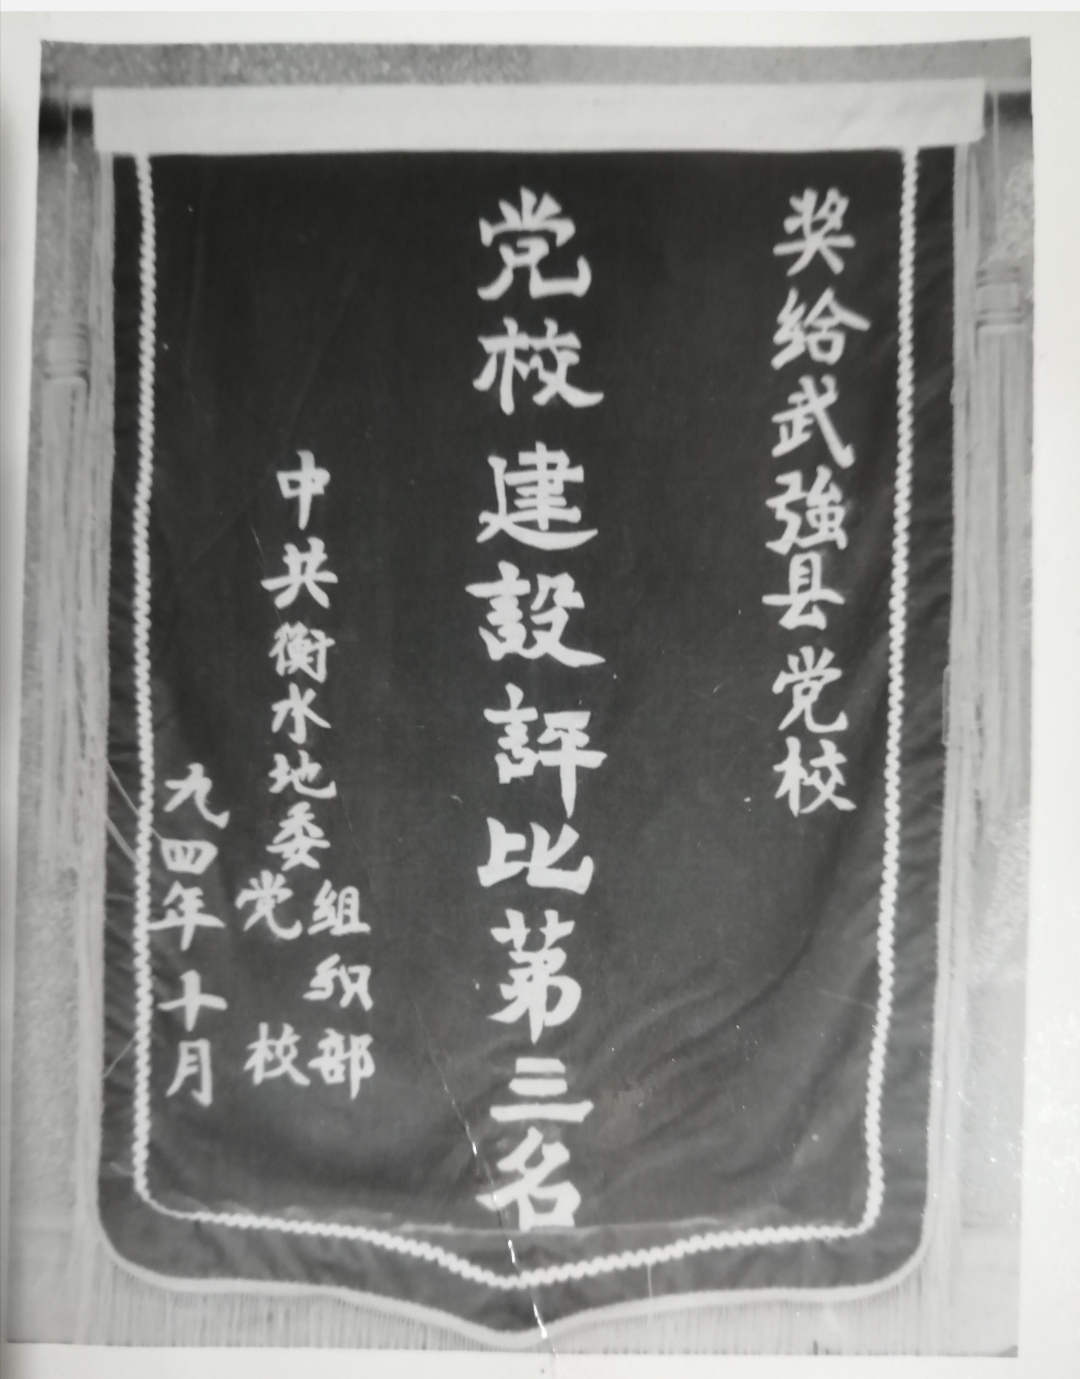 奖给武強县党校
党校建設評比第三名
中共衡水地委
组织部
党校
九四年十月